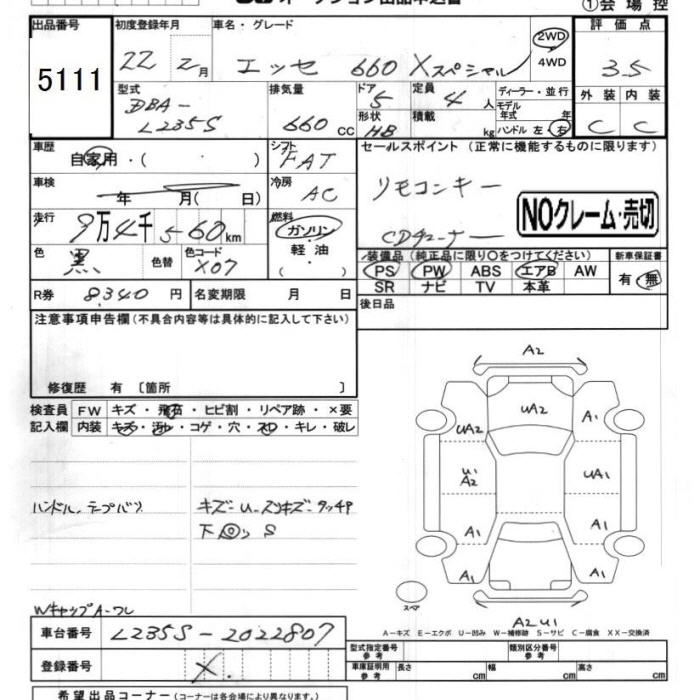 ①会場控
出品番号
5111
初度登録年月
22 2月
車名・グレード
エッセ 660 Xスペシャル
2WD
4WD
評価点
3.5
外装 内装
C C
型式
DBA-
L235S
排気量
660 CC
ドア
5
形状
HB
定員
4 人
積載
kg
ディーラー・並行
モデル
年式 年
ハンドル 左・右
車歴
自家用・( )
シフト
FAT
セールスポイント (正常に機能するものに限ります)
リモコンキー
CDチューナー
NOクレーム・売切
車検
年 月( 日)
冷房
AC
走行
9万4千560km
燃料
ガソリン
軽油
( ・ )
色
黒
色替
色コード
X07
装備品 (純正品に限り○をつけてください)
PS PW ABS エアB AW
SR ナビ TV 本革
新車保証書
有・無
R券 8,340 円
名変期限 月 日
後日品
注意事項申告欄(不具合内容等は具体的に記入して下さい)
修復歴 有〔箇所 〕
検査員
記入欄
FW キズ・飛石・ヒビ割・リペア跡・×要
内装 キズ・汚レ・コゲ・穴・スレ・キレ・破レ
ハンドル、テープバツ
キズ-U-スリキズ-タッチP
下回 S
WキャップA-ワレ
A2
UA2
A1
UA2
U1
A2
UA1
A1
A1
A1
A1
スペア
A2U1
A-キズ E-エクボ U-凹み W-補修跡 S-サビ C-腐食 XX-交換済
車台番号 L235S-2022807
登録番号 X
型式指定番号
参考
類別区分番号
参考
車庫証明用
参考
長さ cm 幅 cm 高さ cm
希望出品コーナー(コーナーは各会場により異なります。)